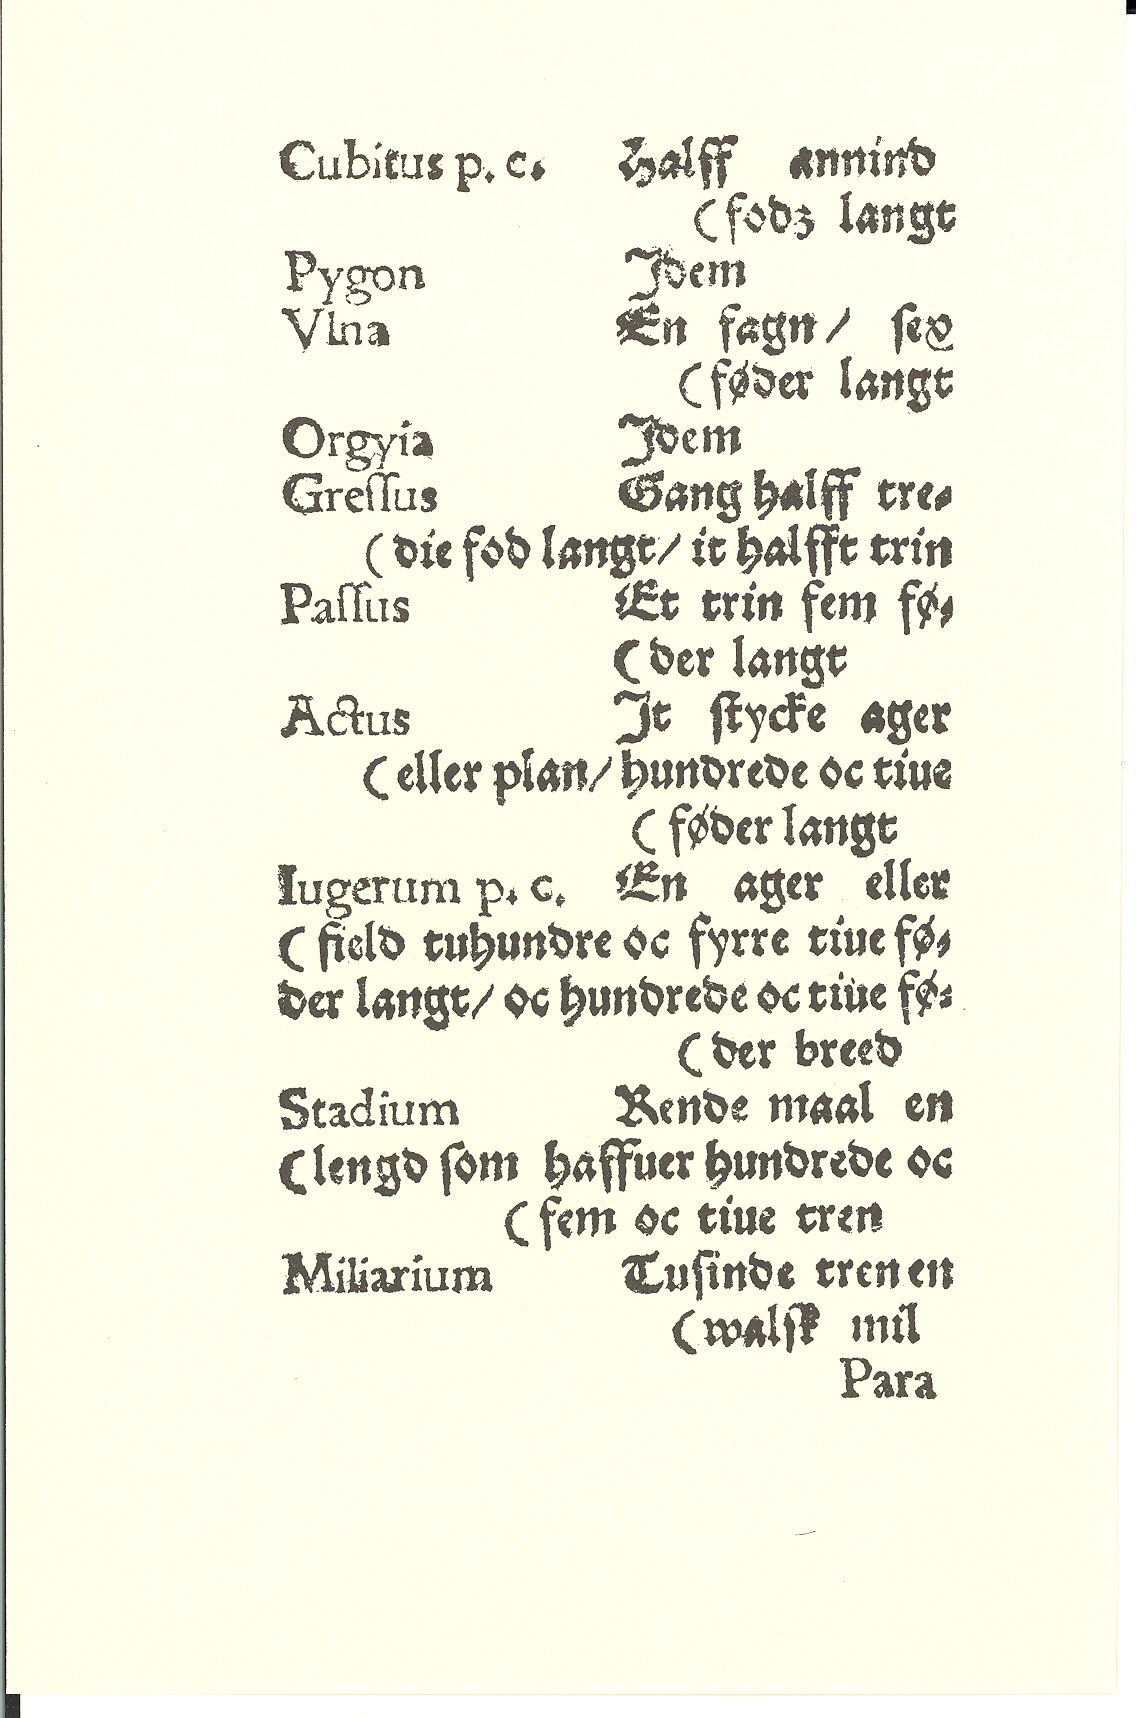 Cubitus p. c. Halff annind
(fodz langt
Pygon Jdem
Vlna En fagn / ſex
(føder langt
Orgyia Jdem
Greſſus Gang halff tre⸗
(die fod langt / it halfft trin
Paſſus Et trin fem fø⸗
(der langt
Actus Jt ſtycke ager
(eller plan / hundrede oc tiue
(føder langt
Iugerum p. c. En ager eller
(field tuhundre oc fyrre tiue fø⸗
der langt / oc hundrede oc tiue fø⸗
(der breed
Stadium Rende maal en
(lengd ſom haffuer hundrede oc
(fem oc tiue tren
Miliarium Tuſinde tren en
(walſk mil
Para